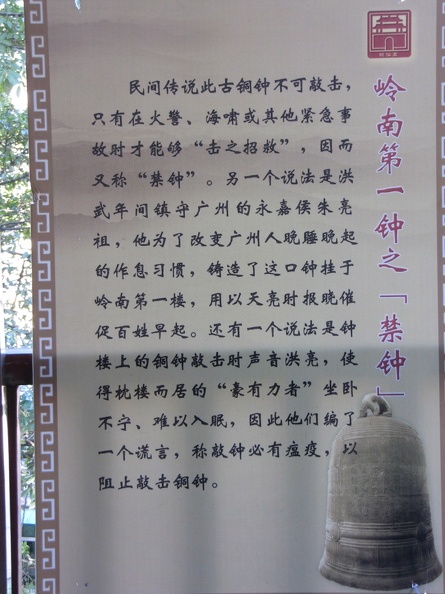 岭南第一钟之「禁钟」
民间传说此古铜钟不可敲击，
只有在火警、海啸或其他紧急事
故时才能够“击之招救”，因而
又称“禁钟”。另一个说法是洪
武年间镇守广州的永嘉侯朱亮
祖，他为了改变广州人晚睡晚起
的作息习惯，铸造了这口钟挂于
岭南第一楼，用以天亮时报晓催
促百姓早起。还有一个说法是钟
楼上的铜钟敲击时声音洪亮，使
得枕楼而居的“豪有力者”坐卧
不宁、难以入眠，因此他们编了
一个谎言，称敲钟必有瘟疫，以
阻止敲击铜钟。